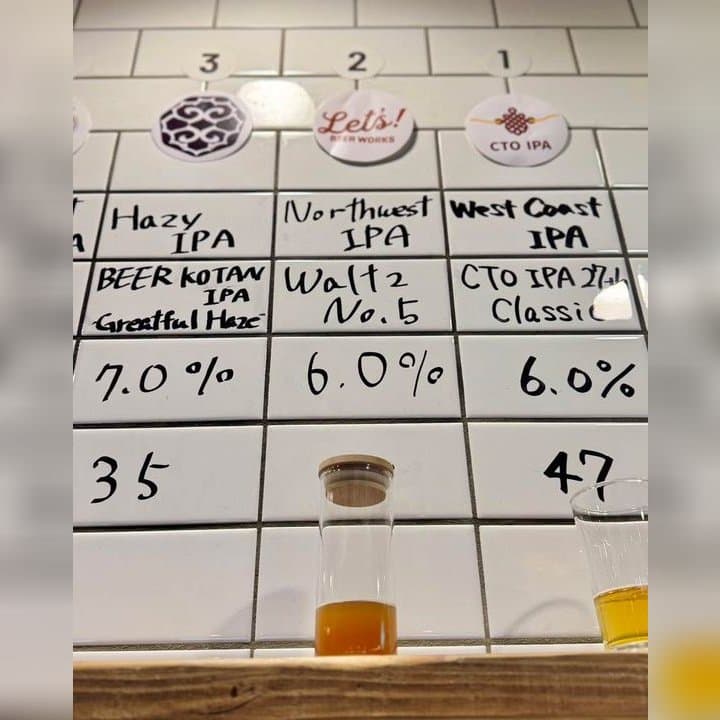 3
2
1
Let's!
BEER WORKS
CTO IPA
Hazy
IPA
Northwest
IPA
West Coast
IPA
BEER KOTAN
IPA
-Greatful Haze-
Waltz
No.5
CTO IPA
Classic
7.0%
6.0%
6.0%
35
47